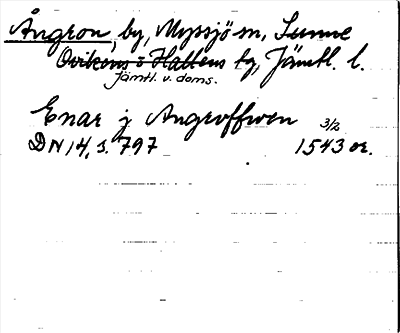 Ångron, by, Myssjö sn, Sunne
Ovikens o Hallens tg, Jämtl. l.
Jämtl. v. doms.
Enar j Angroffwen 3/2
DN 14, s. 797 1543 or.